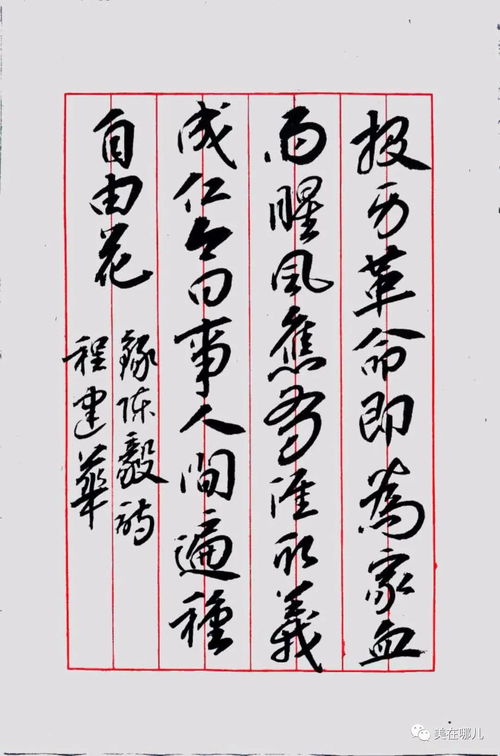 投身革命即為家血
雨腥風應有涯取義
成仁今日事人間遍種
自由花
錄陳毅詩
程建華
美在哪儿